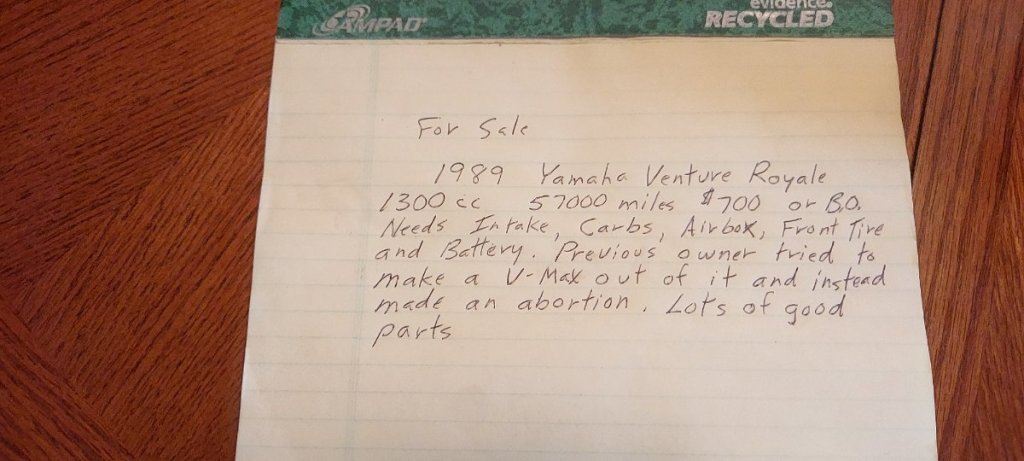 AMPAD
evidence.
RECYCLED
For Sale
1989 Yamaha Venture Royale
1300 cc 57000 miles $700 or B.O.
Needs Intake, Carbs, Airbox, Front Tire
and Battery. Previous owner tried to
make a V-Max out of it and instead
made an abortion. Lots of good
parts